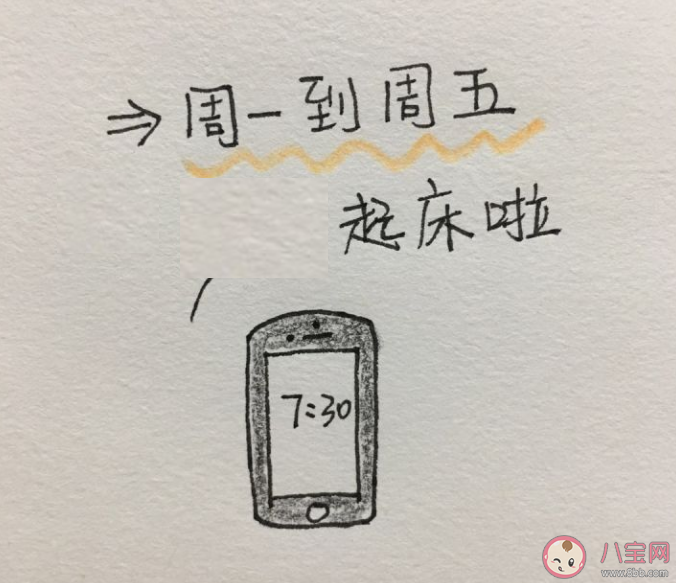 ⇒周一到周五
起床啦
7:30
八宝网
www.8bb.com